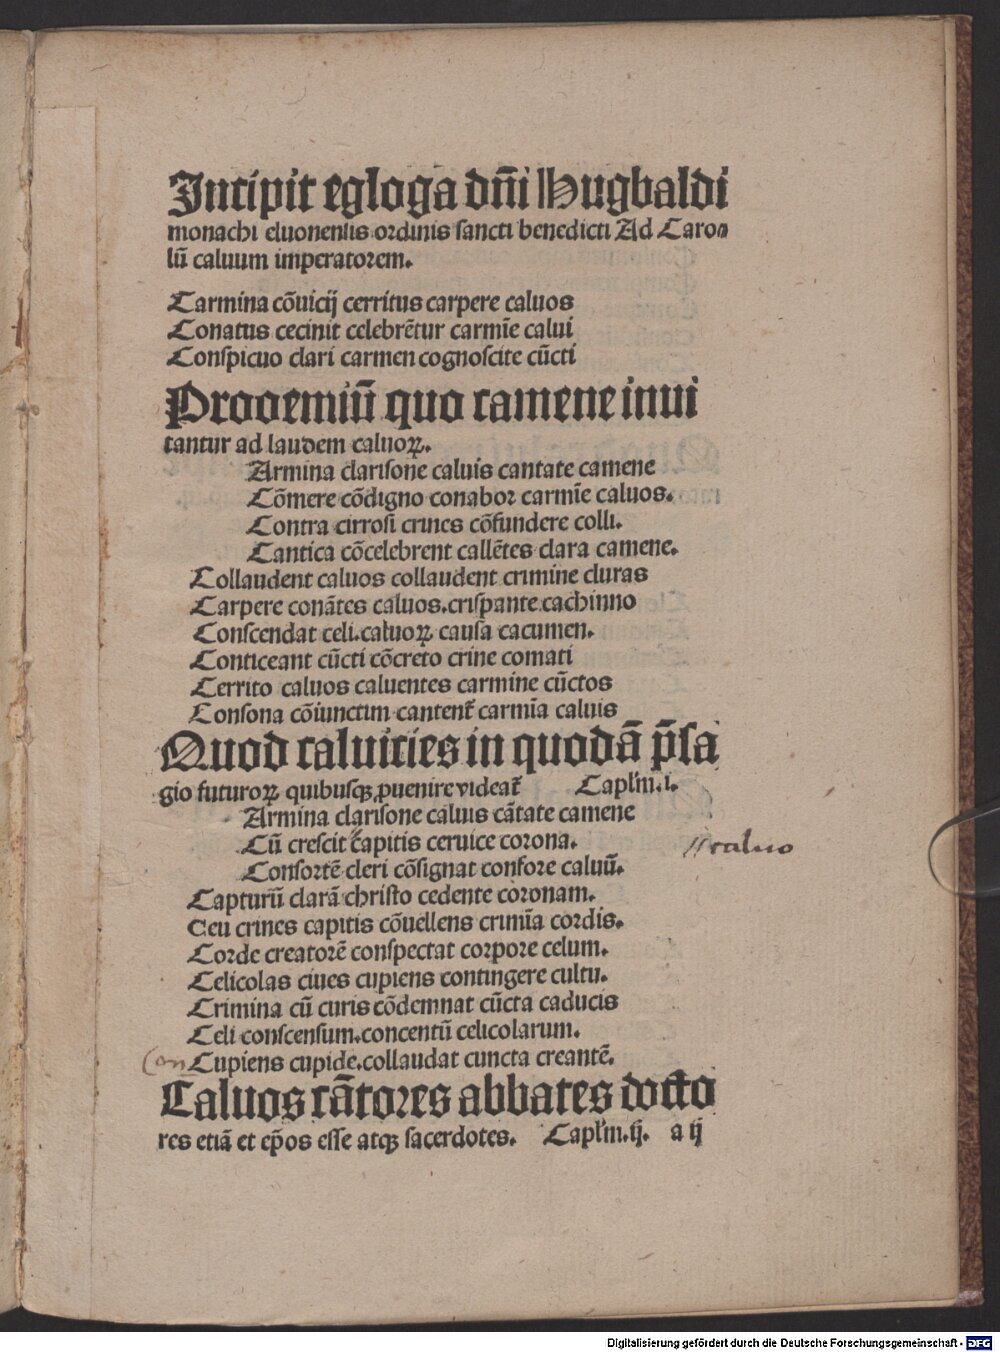 Incipit egloga dñi Hugbaldi
monachi eluonensis ordinis sancti benedicti Ad Caro⸗
lũ caluum imperatorem.
Carmina cõuicij cerritus carpere caluos
Conatus cecinit celebrẽtur carmĩe calui
Conspicuo clari carmen cognoscite cũcti
Prooemiũ quo camene inui
tantur ad laudem caluoꝝ.
Armina clarisone caluis cantate camene
Cõmere cõdigno conabor carmĩe caluos.
Contra cirrosi crines cõfundere colli.
Cantica cõcelebrent callẽtes clara camene.
Collaudent caluos collaudent crimine cluras
Carpere conãtes caluos.crispante cachinno
Conscendat celi.caluoꝝ causa cacumen.
Conticeant cũcti cõcreto crine comati
Cerrito caluos caluentes carmine cũctos
Consona cõiunctim cantent̃ carmĩa caluis
Quod caluicies in quodã p̃sa
gio futuroꝝ quibusqꝫ ꝓuenire videat̃ Capl̃m.i.
Armina clarisone caluis cãtate camene
Cũ crescit capitis ceruice corona. //caluo
Consortẽ cleri cõsignat confore caluũ.
Capturũ clarã christo cedente coronam.
Ceu crines capitis cõuellens crimĩa cordis.
Corde creatorẽ conspectat corpore celum.
Celicolas ciues cupiens contingere cultu.
Crimina cũ curis cõdemnat cũcta caducis
Celi conscensum.concentũ celicolarum.
Con Cupiens cupide.collaudat cuncta creantẽ.
Caluos cãtores abbates docto
res etiã et ep̃os esse atqꝫ sacerdotes. Capl̃m.ij. a ij
Digitalisierung gefördert durch die Deutsche Forschungsgemeinschaft - DFG